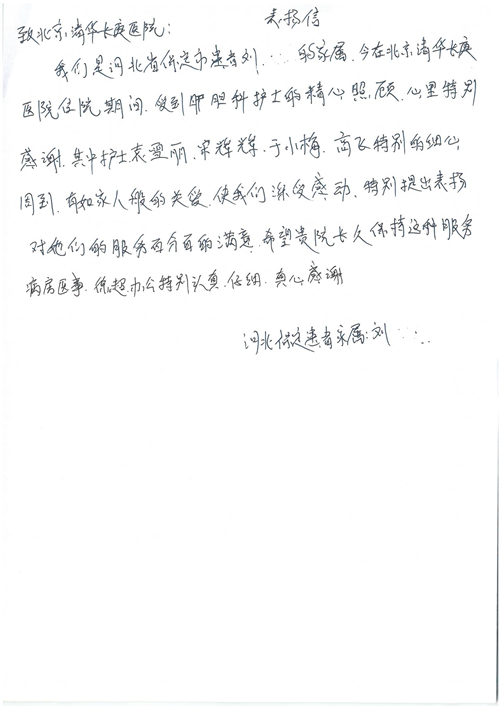 表扬信
致北京清华长庚医院：
我们是河北省保定市患者刘 的家属，今在北京清华长庚
医院住院期间，受到肝胆科护士的精心照顾，心里特别
感谢，其中护士袁雪丽、宋辉辉、于小梅、高飞特别的细心
周到，有如家人般的关爱，使我们深受感动，特别提出表扬
对她们的服务百分百的满意，希望贵院长久保持这种服务
病房医事，徐超办公特别认真、仔细，真心感谢
河北保定患者家属：刘